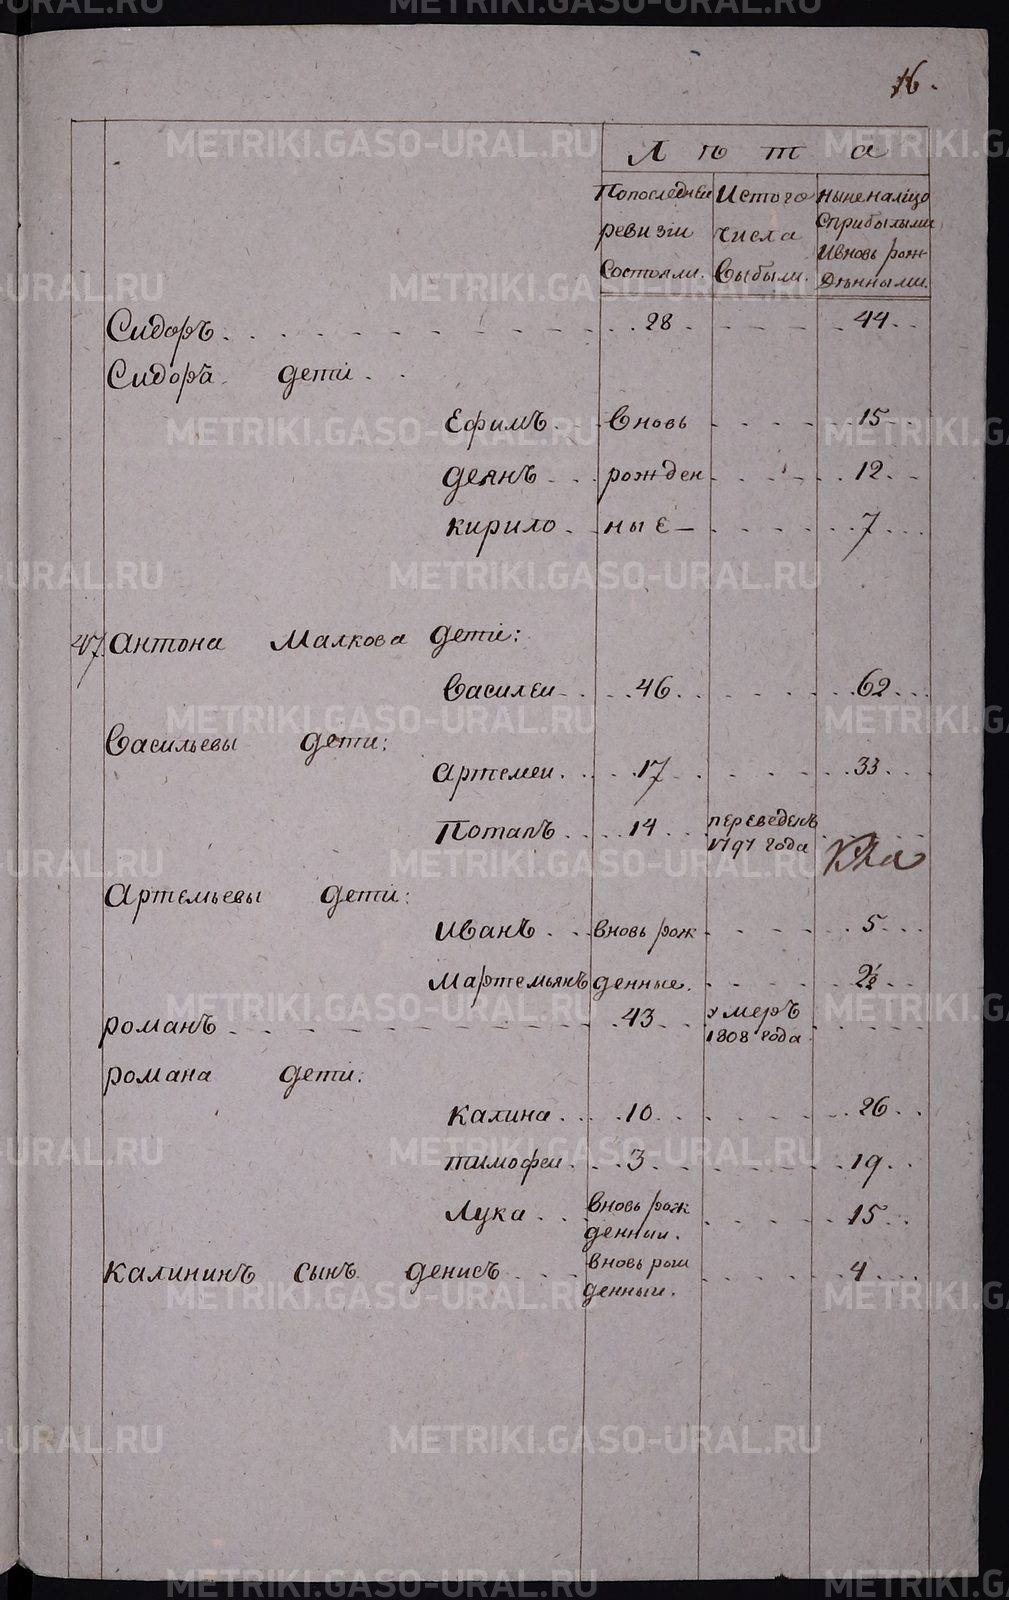 16.
Лѣта
По последней Ис того ныне налицо
ревизии числа с прибылыми
состояли. выбыли. и вновь рож-
денными.
Сидоръ 28 44
Сидора дети
Ефимъ вновь 15
деянъ рожден 12
кирило ные 7
47. Антона Малкова дети:
василеи 46 62
Васильевы дети:
артемеи 17 33
Потапъ 14 переведенъ
1797 года
Артемьевы дети:
иванъ вновь рож 5
Мартемьянъ денные. 2½
романъ 43 умеръ
1808 года
романа дети:
калина 10 26
тимофеи 3 19
Лука вновь рож 15
денныи.
калининъ сынъ денисъ вновь рож 4
денныи.
METRIKI.GASO-URAL.RU